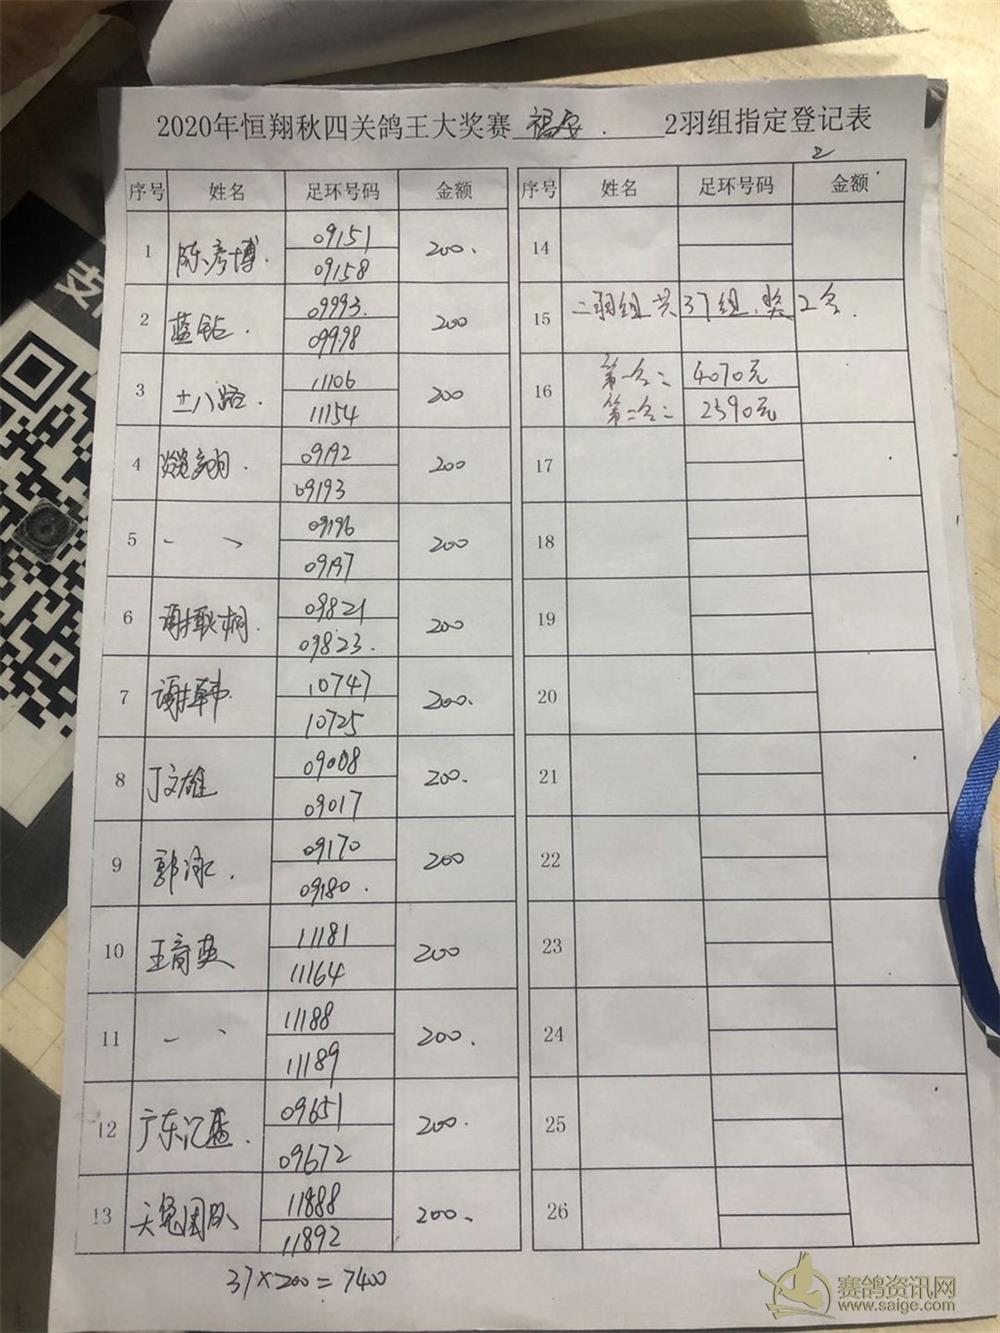 2020年恒翔秋四关鸽王大奖赛 福安. 2羽组指定登记表
2
序号 姓名 足环号码 金额 序号 姓名 足环号码 金额
1 陈彦博. 09151 09158 200. 14
2 蓝钻 09993. 09998 200 15 二羽组共37组.奖2名.
3 十八路. 11106 11154 200 16 第一名: 4070元 第二名: 2590元
4 翔. 09192 09193 200 17
5 09196 09197 200 18
6 谢耿桐. 09821 09823. 200 19
7 谢韩 10747 10725 200. 20
8 丁文雄 09008 09017 200. 21
9 郭泳. 09170 09180. 200 22
10 王育英 11181 11164 200 23
11 11188 11189 200. 24
12 广东汇蓝. 09651 09672 200. 25
13 天冕团队 11888 11892 200. 26
37×200=7400
支
赛鸽资讯网
www.saige.com